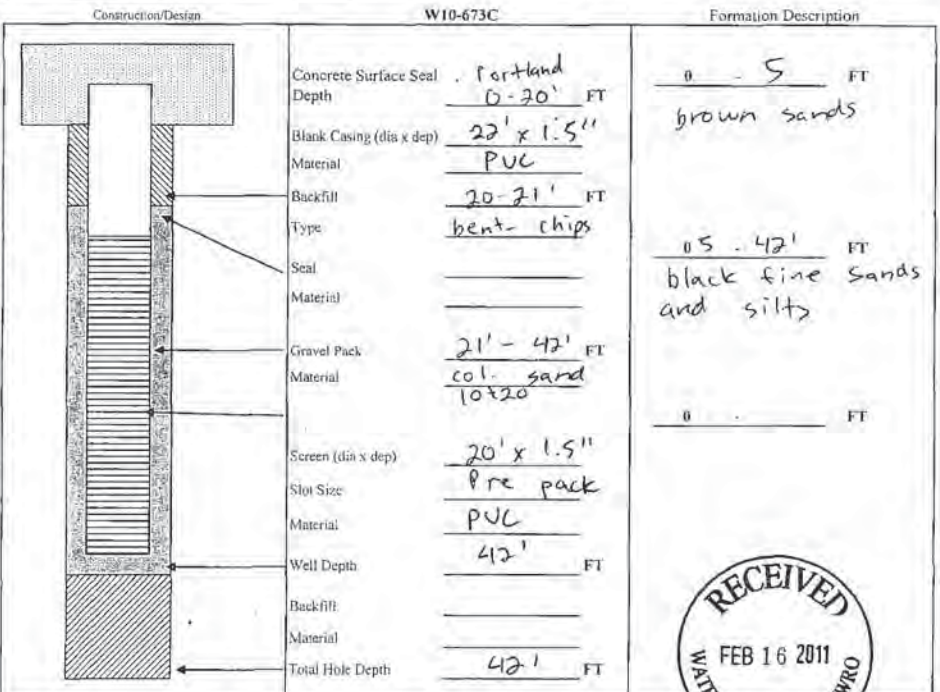 Construction/Design
W10-673C
Formation Description
Concrete Surface Seal . Portland
Depth 0-20' FT
Blank Casing (dia x dep) 22' x 1.5"
Material PVC
Backfill 20-21' FT
Type bent- chips
Seal
Material
Gravel Pack 21' - 42' FT
Material col. sand
10+20
Screen (dia x dep) 20' x 1.5"
Slot Size Pre pack
Material PVC
Well Depth 42' FT
Backfill
Material
Total Hole Depth 42' FT
0 - 5 FT
brown sands
0 5 - 42' FT
black fine sands
and silts
0 - FT
RECEIVED
FEB 16 2011